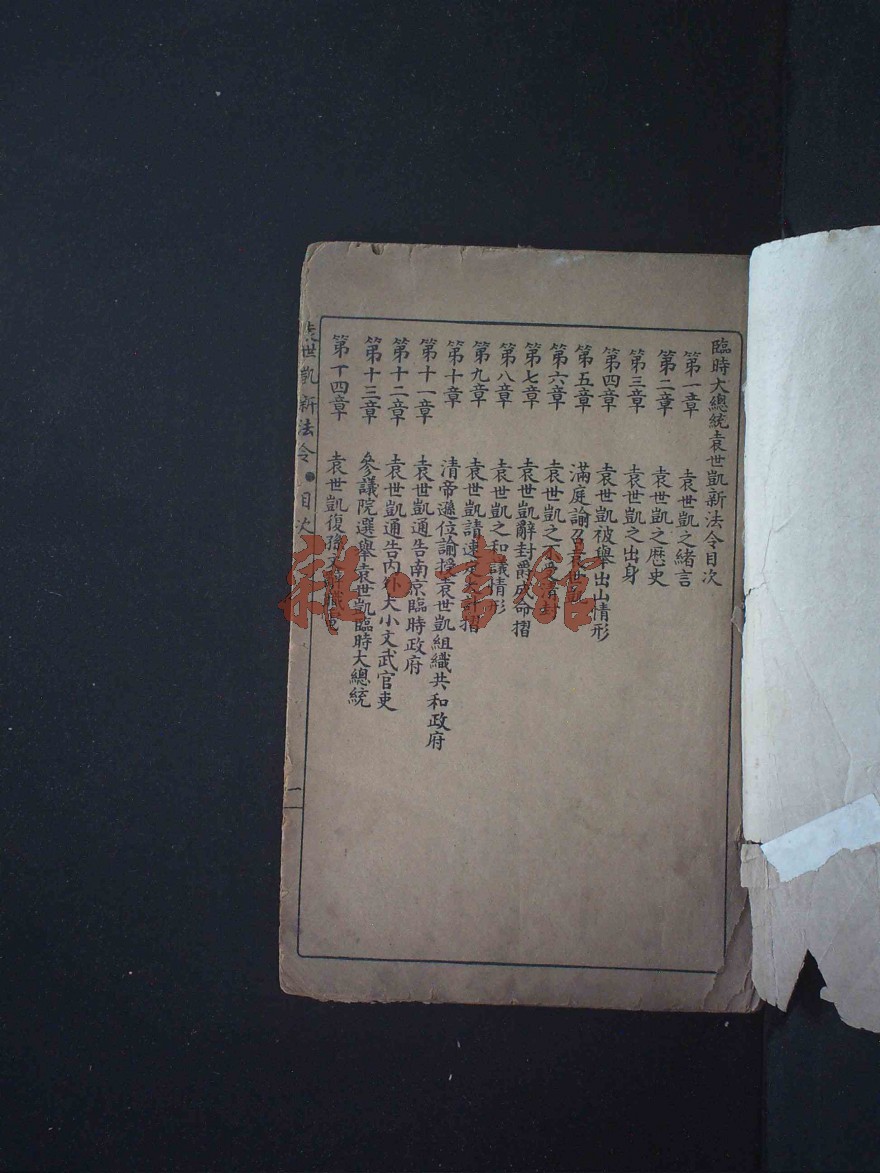 臨時大總統袁世凱新法令目次
第一章 袁世凱之緒言
第二章 袁世凱之歷史
第三章 袁世凱之出身
第四章 袁世凱被舉出山情形
第五章 滿庭諭召袁世凱
第六章 袁世凱之
第七章 袁世凱辭封爵成命摺
第八章 袁世凱之和議情形
第九章 袁世凱請速定大計摺
第十章 清帝遜位諭授袁世凱組織共和政府
第十一章 袁世凱通告南京臨時政府
第十二章 袁世凱通告內外大小文武官吏
第十三章 參議院選舉袁世凱臨時大總統
第十四章 袁世凱復孫文
袁世凱新法令●目次
一
雜·書館